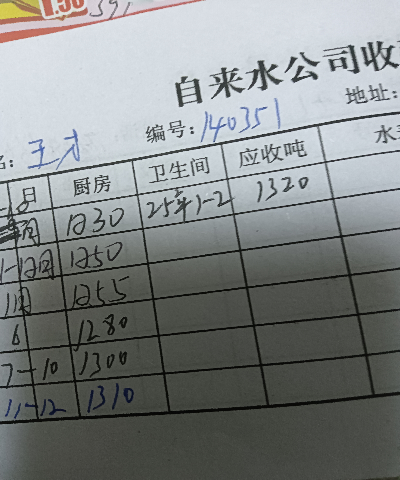 1.58
自来水公司收
编号：140351
地址：
名：王才
月 厨房 卫生间 应收吨 水
月 1230 25年1-2 1320
1-12月 1250
1月 1255
6 1280
7-10 1300
11-12 1310